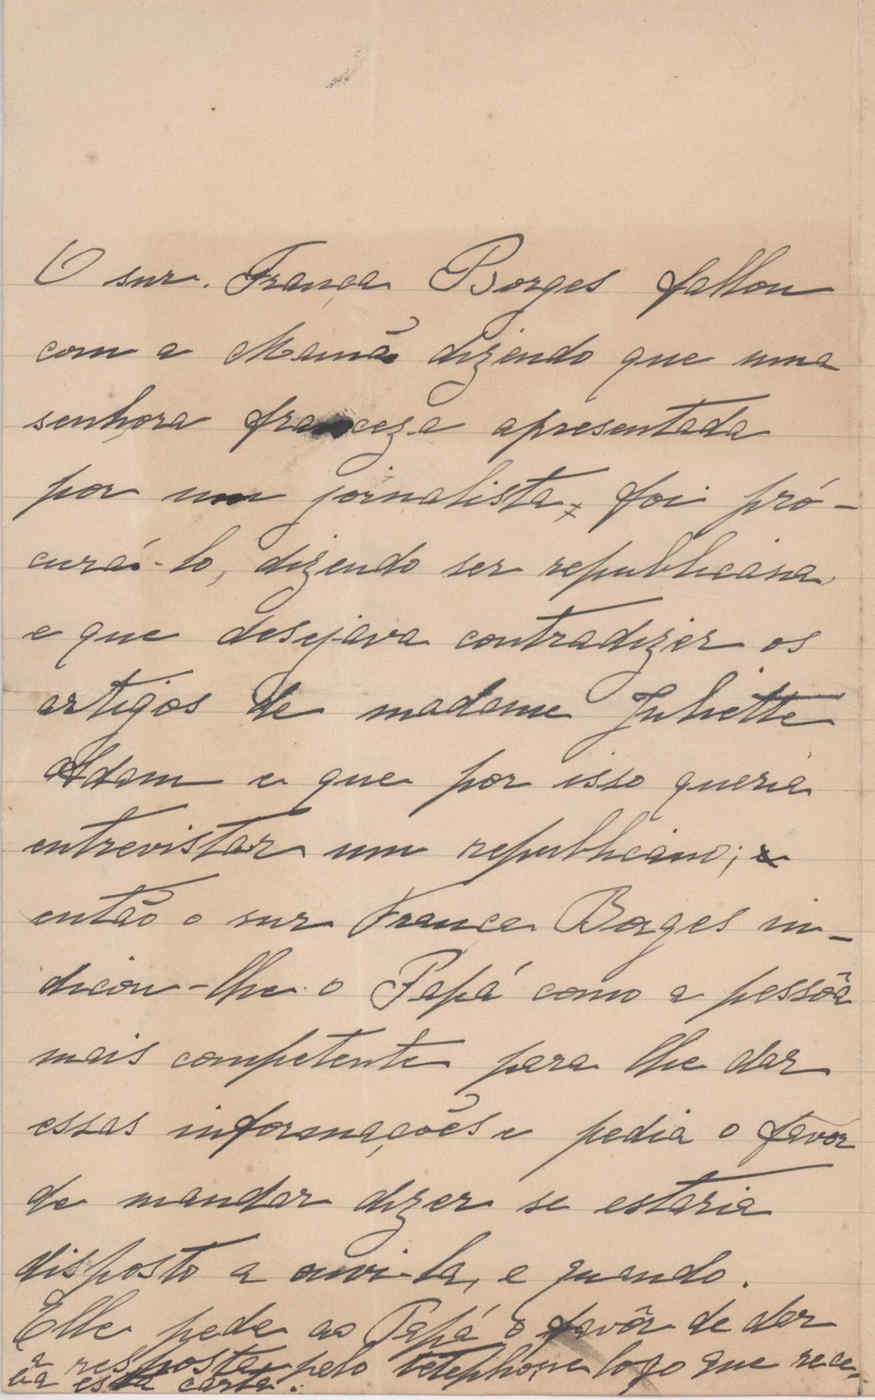 O snr. França Borges fallou
com a Mamã dizendo que uma
senhora franceza apresentada
por um jornalista, foi pró-
curá-lo, dizendo ser republicana,
e que desejava contradizer os
artigos de madame Juliette
Adam e que por isso queria
entrevistar um republicano; e
então o snr França Borges in-
dicou-lhe o Papá como a pessôa
mais competente para lhe dar
essas informações e pedia o favor
de mandar dizer se estaria
disposto a ouvi-la, e quando.
Elle pede ao Papá o favôr de dar
a resposta pelo telephone logo que rece-
ba esta carta.